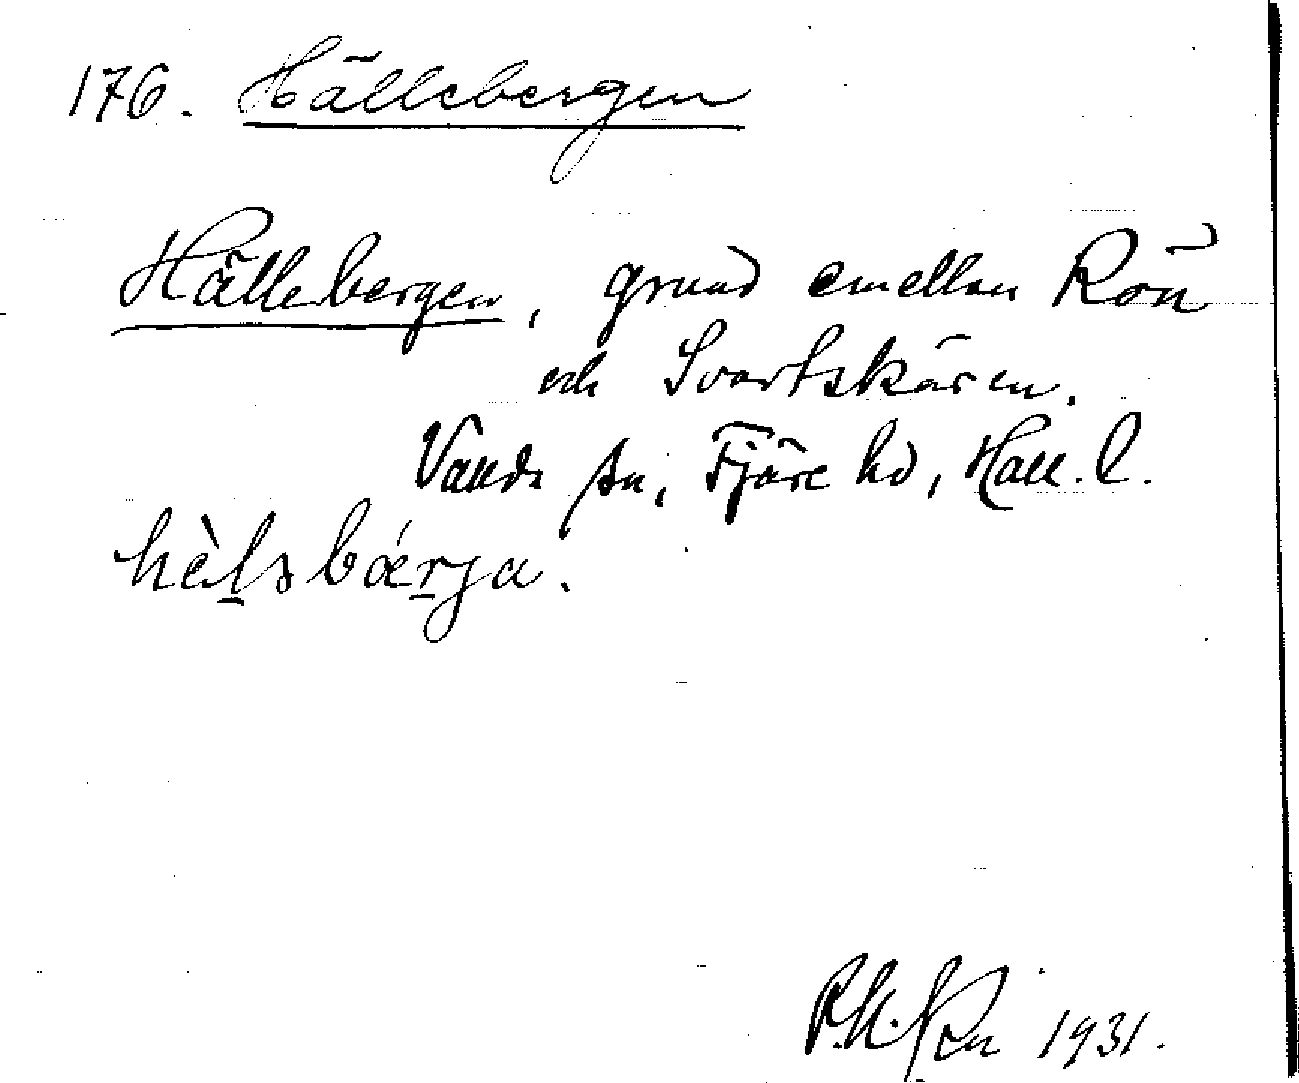 176. Hällebergen
Hällebergen, grund emellan Rön
och Svartskären.
Vallda sn, Fjäre hd, Hall. l.
hèlsbǽrja.
1931.